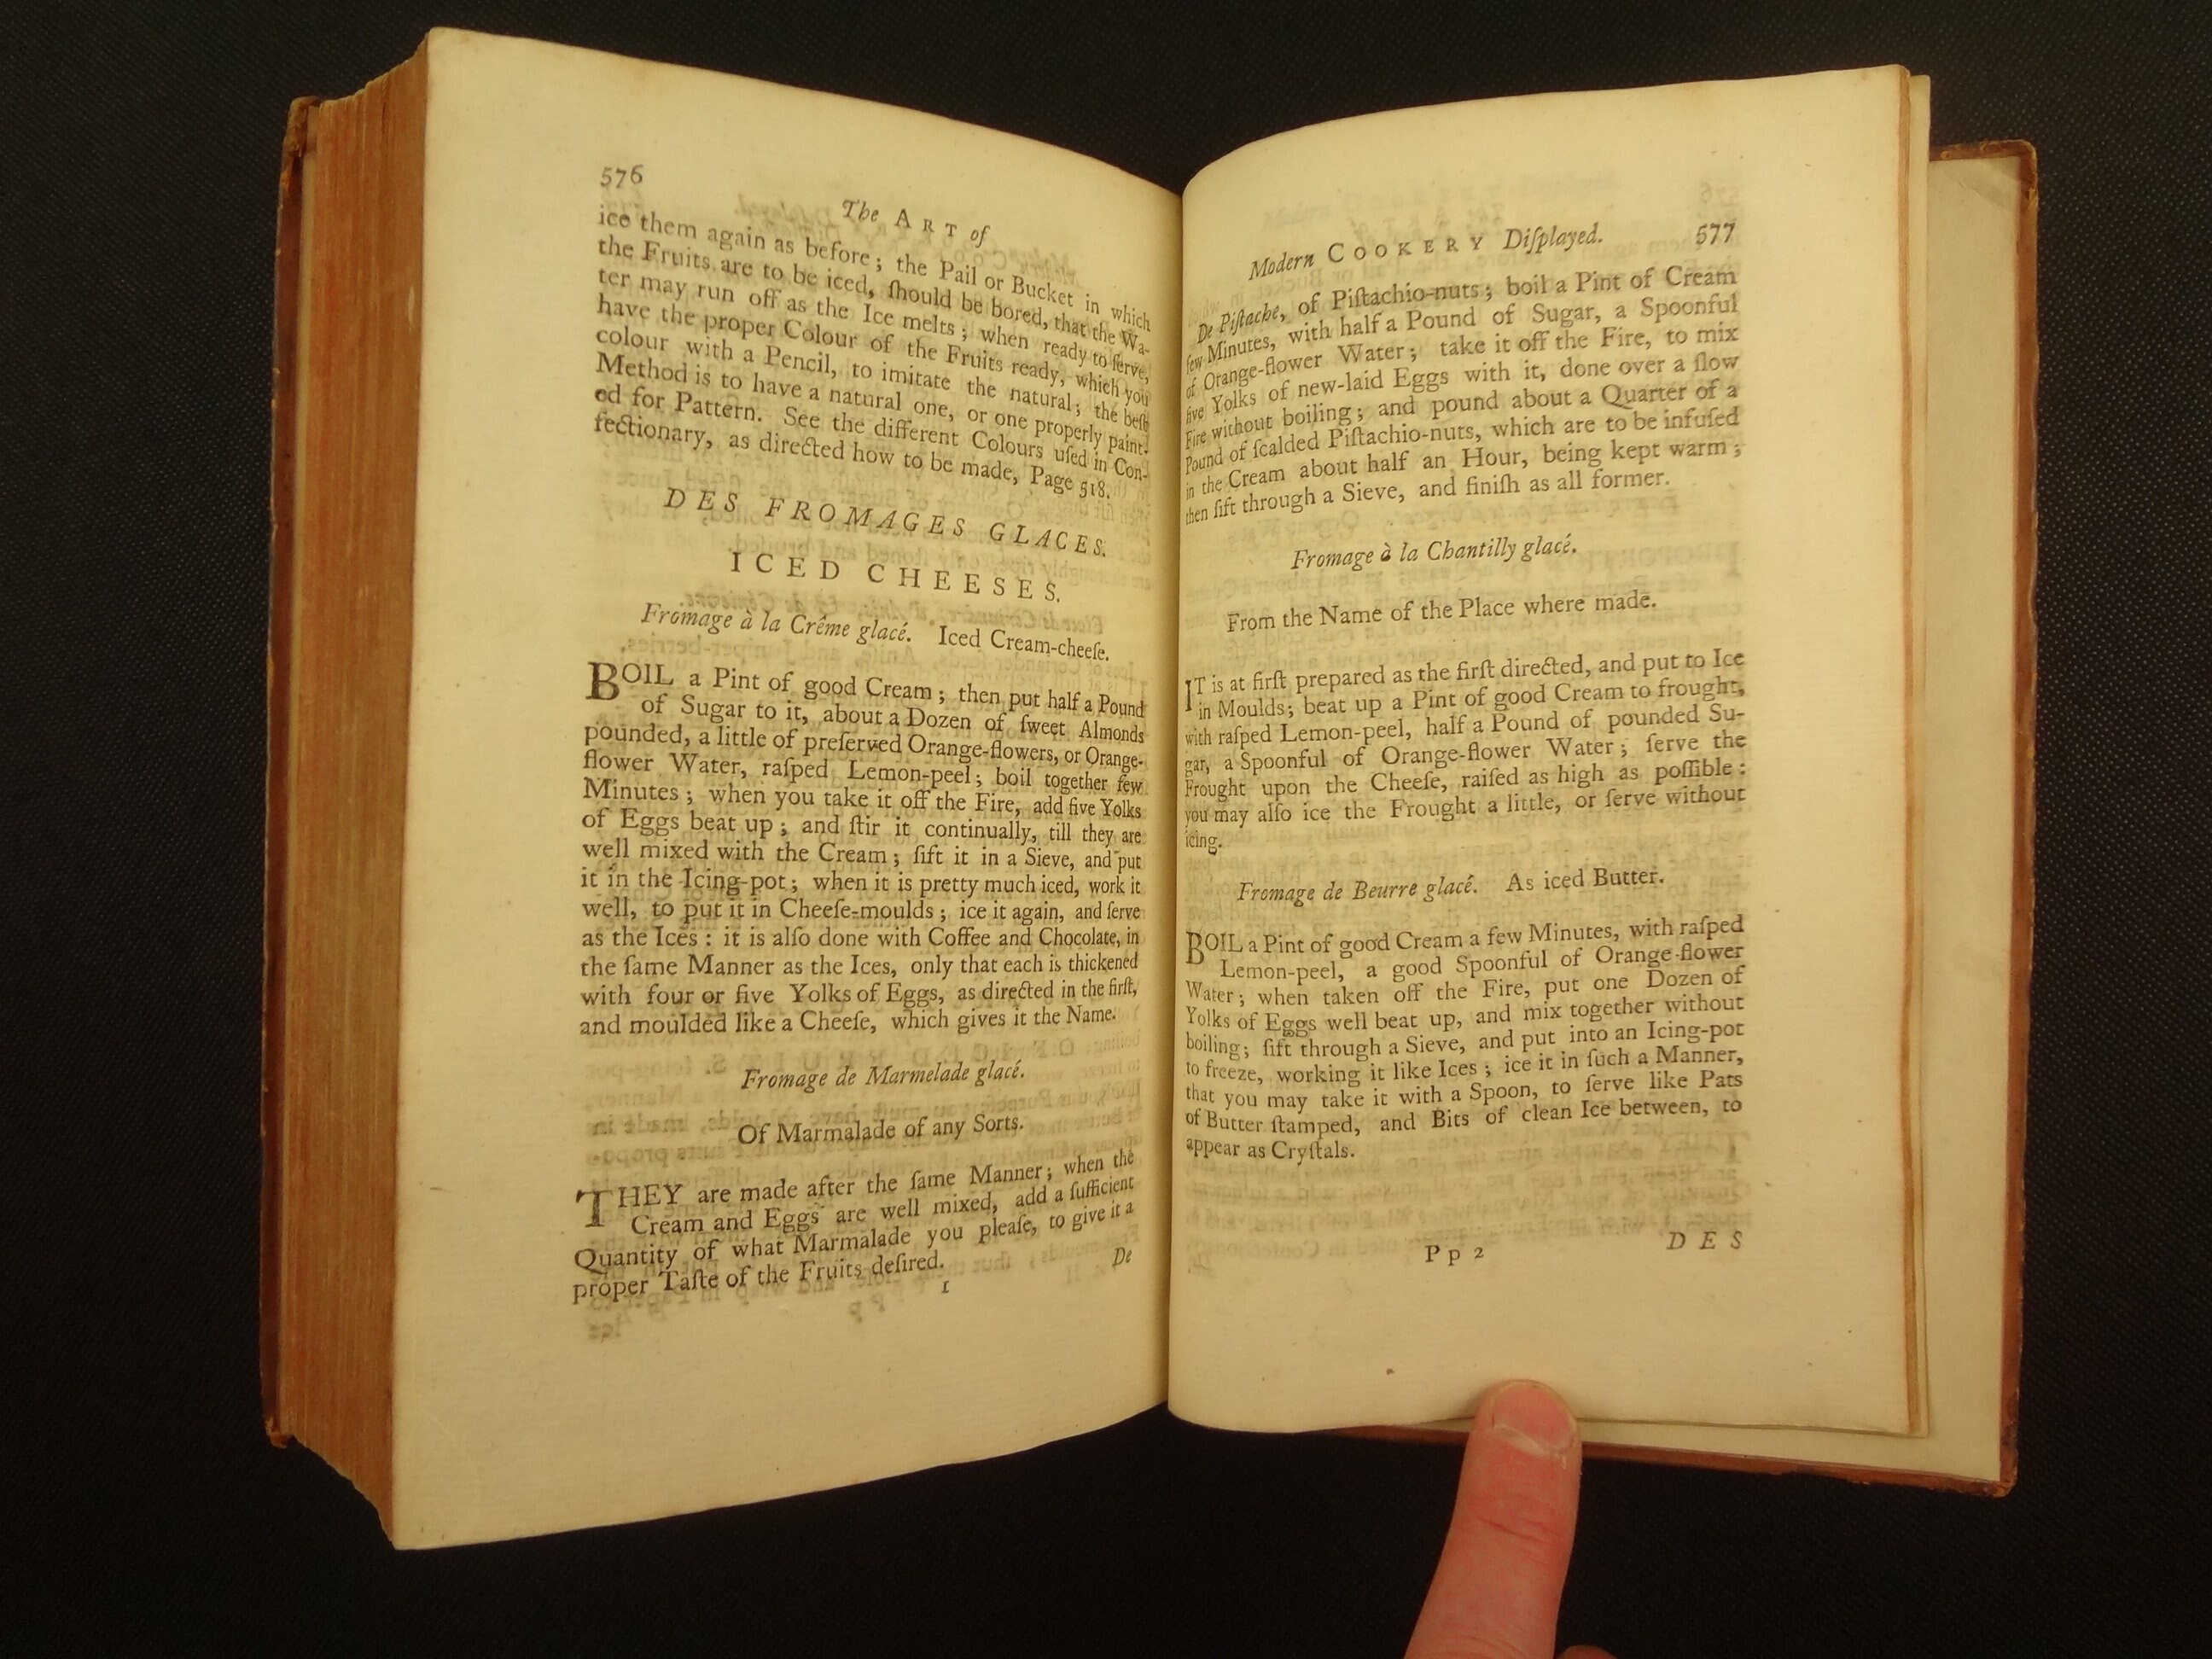 576
The ART of
ice them again as before; the Pail or Bucket in which
the Fruits are to be iced, ſhould be bored, that the Wa-
ter may run off as the Ice melts; when ready to ſerve,
have the proper Colour of the Fruits ready, which you
colour with a Pencil, to imitate the natural; the beſt
Method is to have a natural one, or one properly paint-
ed for Pattern. See the different Colours uſed in Con-
fectionary, as directed how to be made, Page 518.
DES FROMAGES GLACES.
ICED CHEESES.
Fromage à la Crême glacé. Iced Cream-cheeſe.
BOIL a Pint of good Cream; then put half a Pound
of Sugar to it, about a Dozen of ſweet Almonds
pounded, a little of preſerved Orange-flowers, or Orange-
flower Water, raſped Lemon-peel; boil together few
Minutes; when you take it off the Fire, add five Yolks
of Eggs beat up; and ſtir it continually, till they are
well mixed with the Cream; ſift it in a Sieve, and put
it in the Icing-pot; when it is pretty much iced, work it
well, to put it in Cheeſe-moulds; ice it again, and ſerve
as the Ices: it is alſo done with Coffee and Chocolate, in
the ſame Manner as the Ices, only that each is thickened
with four or five Yolks of Eggs, as directed in the firſt,
and moulded like a Cheeſe, which gives it the Name.
Fromage de Marmelade glacé.
Of Marmalade of any Sorts.
THEY are made after the ſame Manner; when the
Cream and Eggs are well mixed, add a ſufficient
Quantity of what Marmalade you pleaſe, to give it a
proper Taſte of the Fruits deſired.
1
De
Modern COOKERY Diſplayed. 577
De Piſtache, of Piſtachio-nuts; boil a Pint of Cream
few Minutes, with half a Pound of Sugar, a Spoonful
of Orange-flower Water; take it off the Fire, to mix
five Yolks of new-laid Eggs with it, done over a ſlow
Fire without boiling; and pound about a Quarter of a
Pound of ſcalded Piſtachio-nuts, which are to be infuſed
in the Cream about half an Hour, being kept warm;
then ſift through a Sieve, and finiſh as all former.
Fromage à la Chantilly glacé.
From the Name of the Place where made.
IT is at firſt prepared as the firſt directed, and put to Ice
in Moulds; beat up a Pint of good Cream to frought,
with raſped Lemon-peel, half a Pound of pounded Su-
gar, a Spoonful of Orange-flower Water; ſerve the
Frought upon the Cheeſe, raiſed as high as poſſible:
you may alſo ice the Frought a little, or ſerve without
icing.
Fromage de Beurre glacé. As iced Butter.
BOIL a Pint of good Cream a few Minutes, with raſped
Lemon-peel, a good Spoonful of Orange-flower
Water; when taken off the Fire, put one Dozen of
Yolks of Eggs well beat up, and mix together without
boiling; ſift through a Sieve, and put into an Icing-pot
to freeze, working it like Ices; ice it in ſuch a Manner,
that you may take it with a Spoon, to ſerve like Pats
of Butter ſtamped, and Bits of clean Ice between, to
appear as Cryſtals.
Pp 2
DES